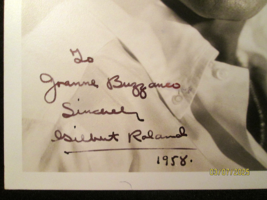 To
Joanne Buzzanco
Sincerely
Gilbert Roland
1958.